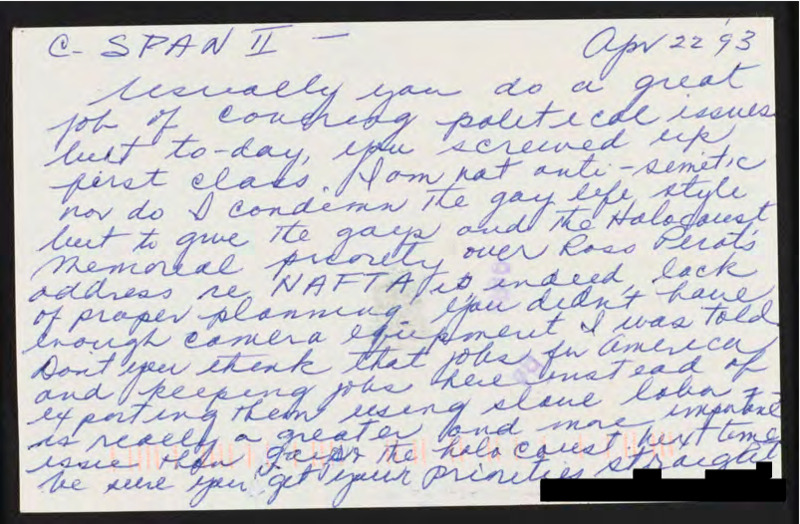 C-SPAN II - Apr 22 '93
Usually you do a great
job of covering political issues
but to-day, you screwed up
first class. I am not anti-semitic
nor do I condemn the gay life style
but to give the gays and the Holocaust
Memorial priority over Ross Perot's
address re NAFTA, is indeed lack
of proper planning. You didn't have
enough camera equipment I was told
Don't you think that jobs for America
and keeping jobs here instead of
exporting them using slave labor -
is really a greater and more important
issue than gays or the holocaust. Next time
be sure you get your priorities straight